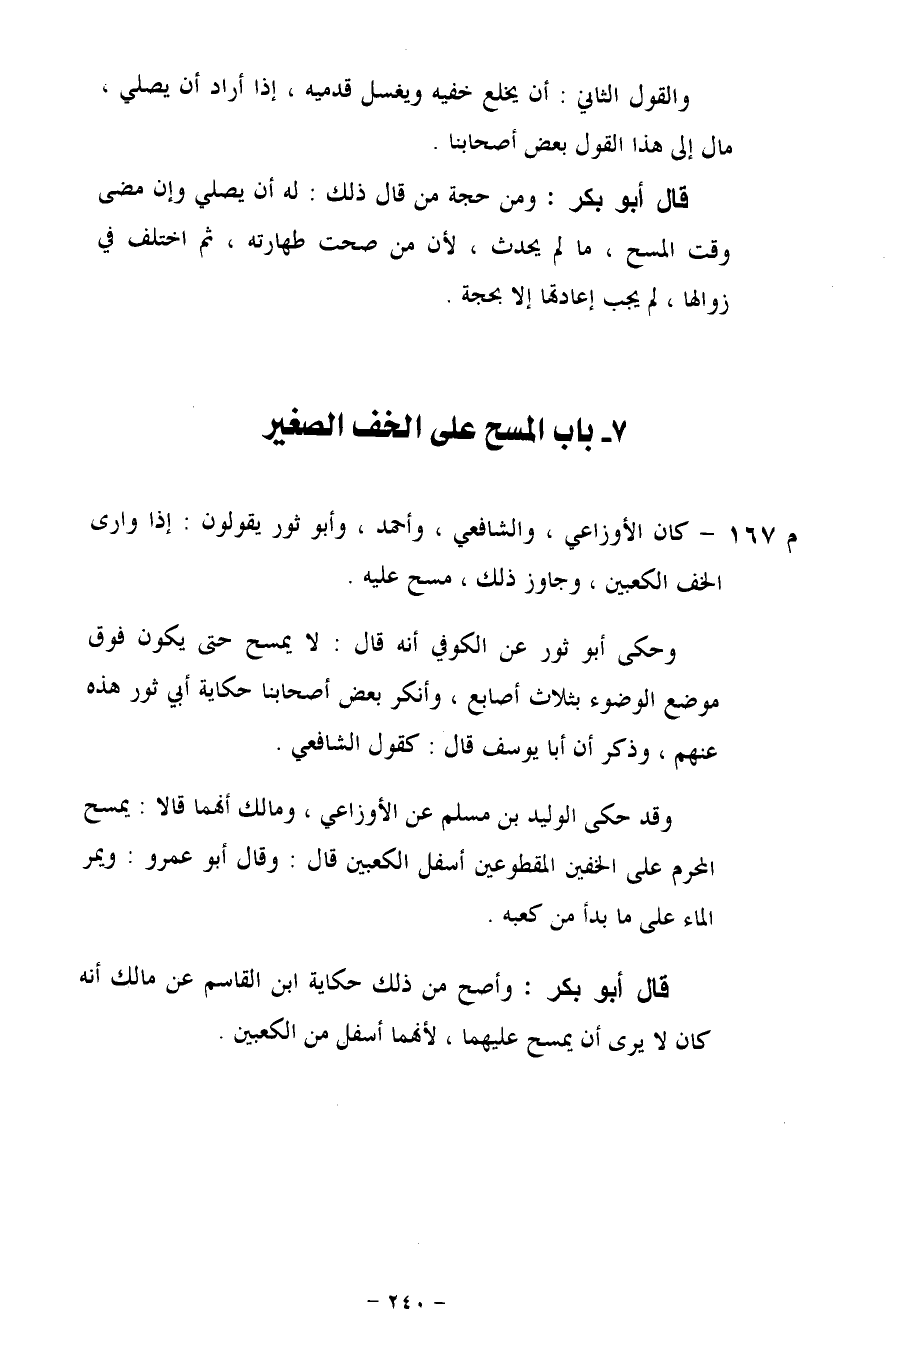 والقول الثاني : أن يخلع خفيه ويغسل قدميه ، إذا أراد أن يصلي ،
مال إلى هذا القول بعض أصحابنا .
قال أبو بكر : ومن حجة من قال ذلك : له أن يصلي وإن مضى
وقت المسح ، ما لم يحدث ، لأن من صحت طهارته ، ثم اختلف في
زوالها ، لم يجب إعادتها إلا بحجة .
٧ـ باب المسح على الخف الصغير
م ١٦٧ – كان الأوزاعي ، والشافعي ، وأحمد ، وأبو ثور يقولون : إذا وارى
الخف الكعبين ، وجاوز ذلك ، مسح عليه .
وحكى أبو ثور عن الكوفي أنه قال : لا يمسح حتى يكون فوق
موضع الوضوء بثلاث أصابع ، وأنكر بعض أصحابنا حكاية أبي ثور هذه
عنهم ، وذكر أن أبا يوسف قال : كقول الشافعي .
وقد حكى الوليد بن مسلم عن الأوزاعي ، ومالك أنهما قالا : يمسح
المحرم على الخفين المقطوعين أسفل الكعبين قال : وقال أبو عمرو : ويمر
الماء على ما بدأ من كعبه .
قال أبو بكر : وأصح من ذلك حكاية ابن القاسم عن مالك أنه
كان لا يرى أن يمسح عليهما ، لأنهما أسفل من الكعبين .
– ٢٤٠ –